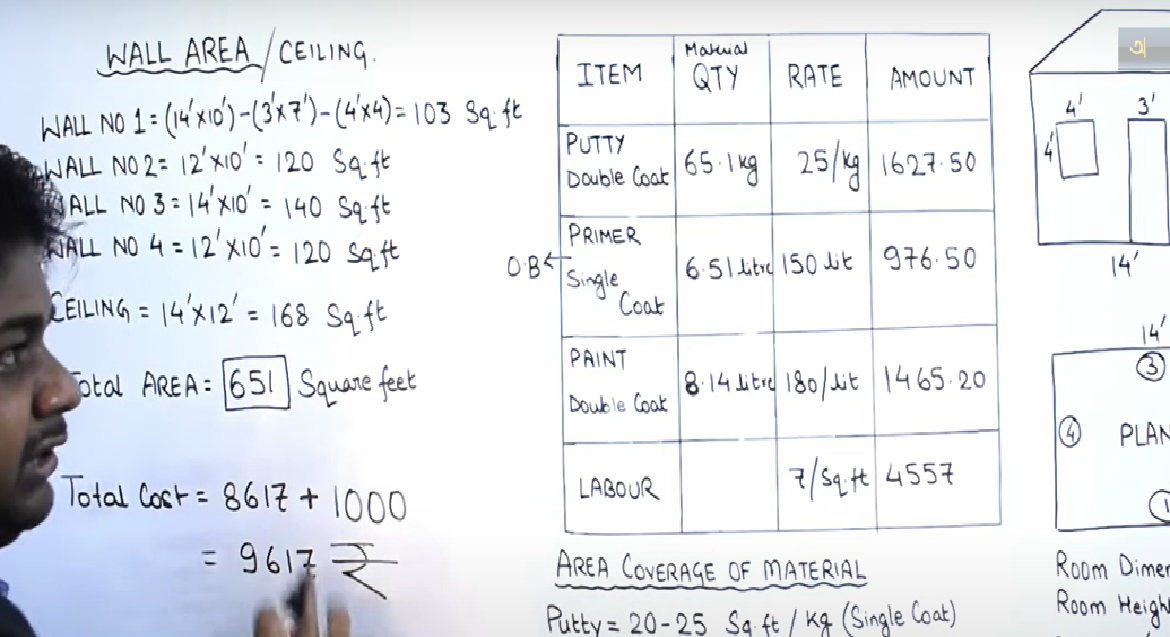 WALL AREA/CEILING.
WALL NO 1 = (14'x10') - (3'x7') - (4'x4) = 103 Sq.ft
WALL NO 2 = 12'x10' = 120 Sq.ft
WALL NO 3 = 14'x10' = 140 Sq.ft
WALL NO 4 = 12'x10' = 120 Sq.ft
CEILING = 14'x12' = 168 Sq.ft
Total AREA = 651 Square feet
Total Cost = 8617 + 1000
= 9617 ₹
ITEM Material QTY RATE AMOUNT
PUTTY Double Coat 65.1kg 25/kg 1627.50
PRIMER Single Coat 6.51 litre 150 lit 976.50
PAINT Double Coat 8.14 litre 180/lit 1465.20
LABOUR 7/Sq.ft 4557
AREA COVERAGE OF MATERIAL
Putty = 20-25 Sq.ft / Kg (Single Coat)
4' 3'
4'
14'
14'
3
4 PLAN
1
Room
Room